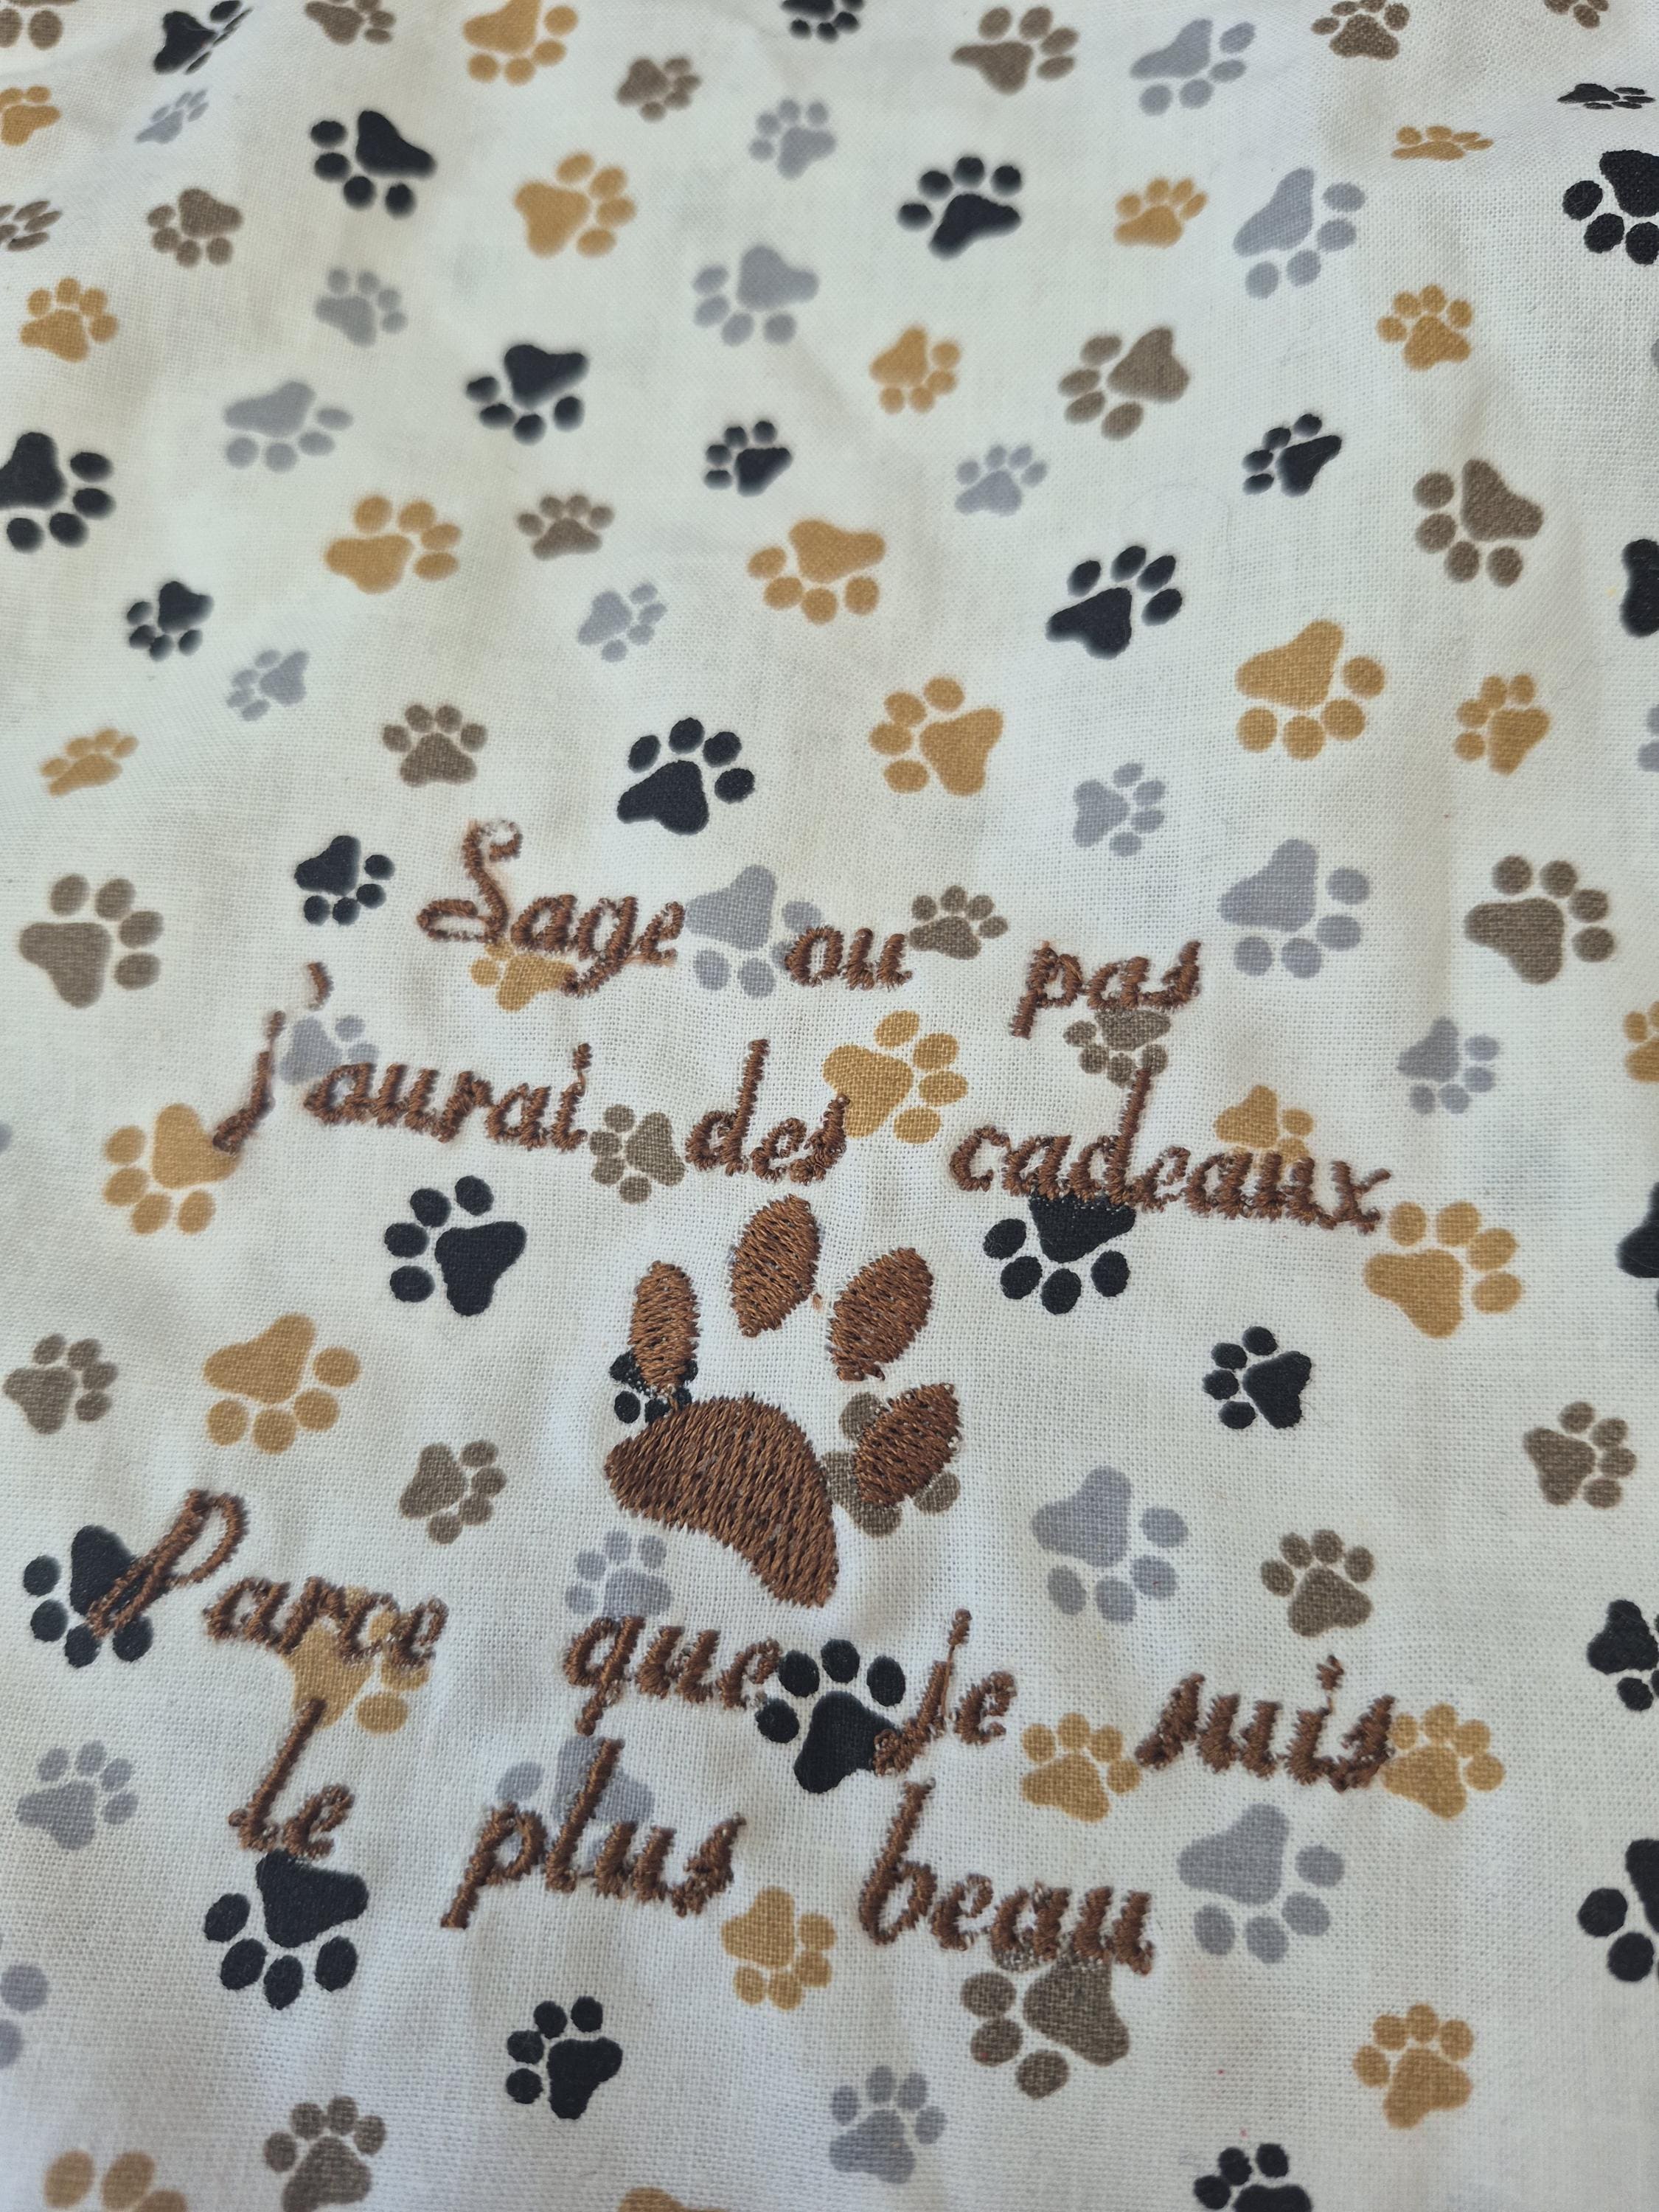 Sage ou pas
j'aurai des cadeaux
Parce que je suis
le plus beau